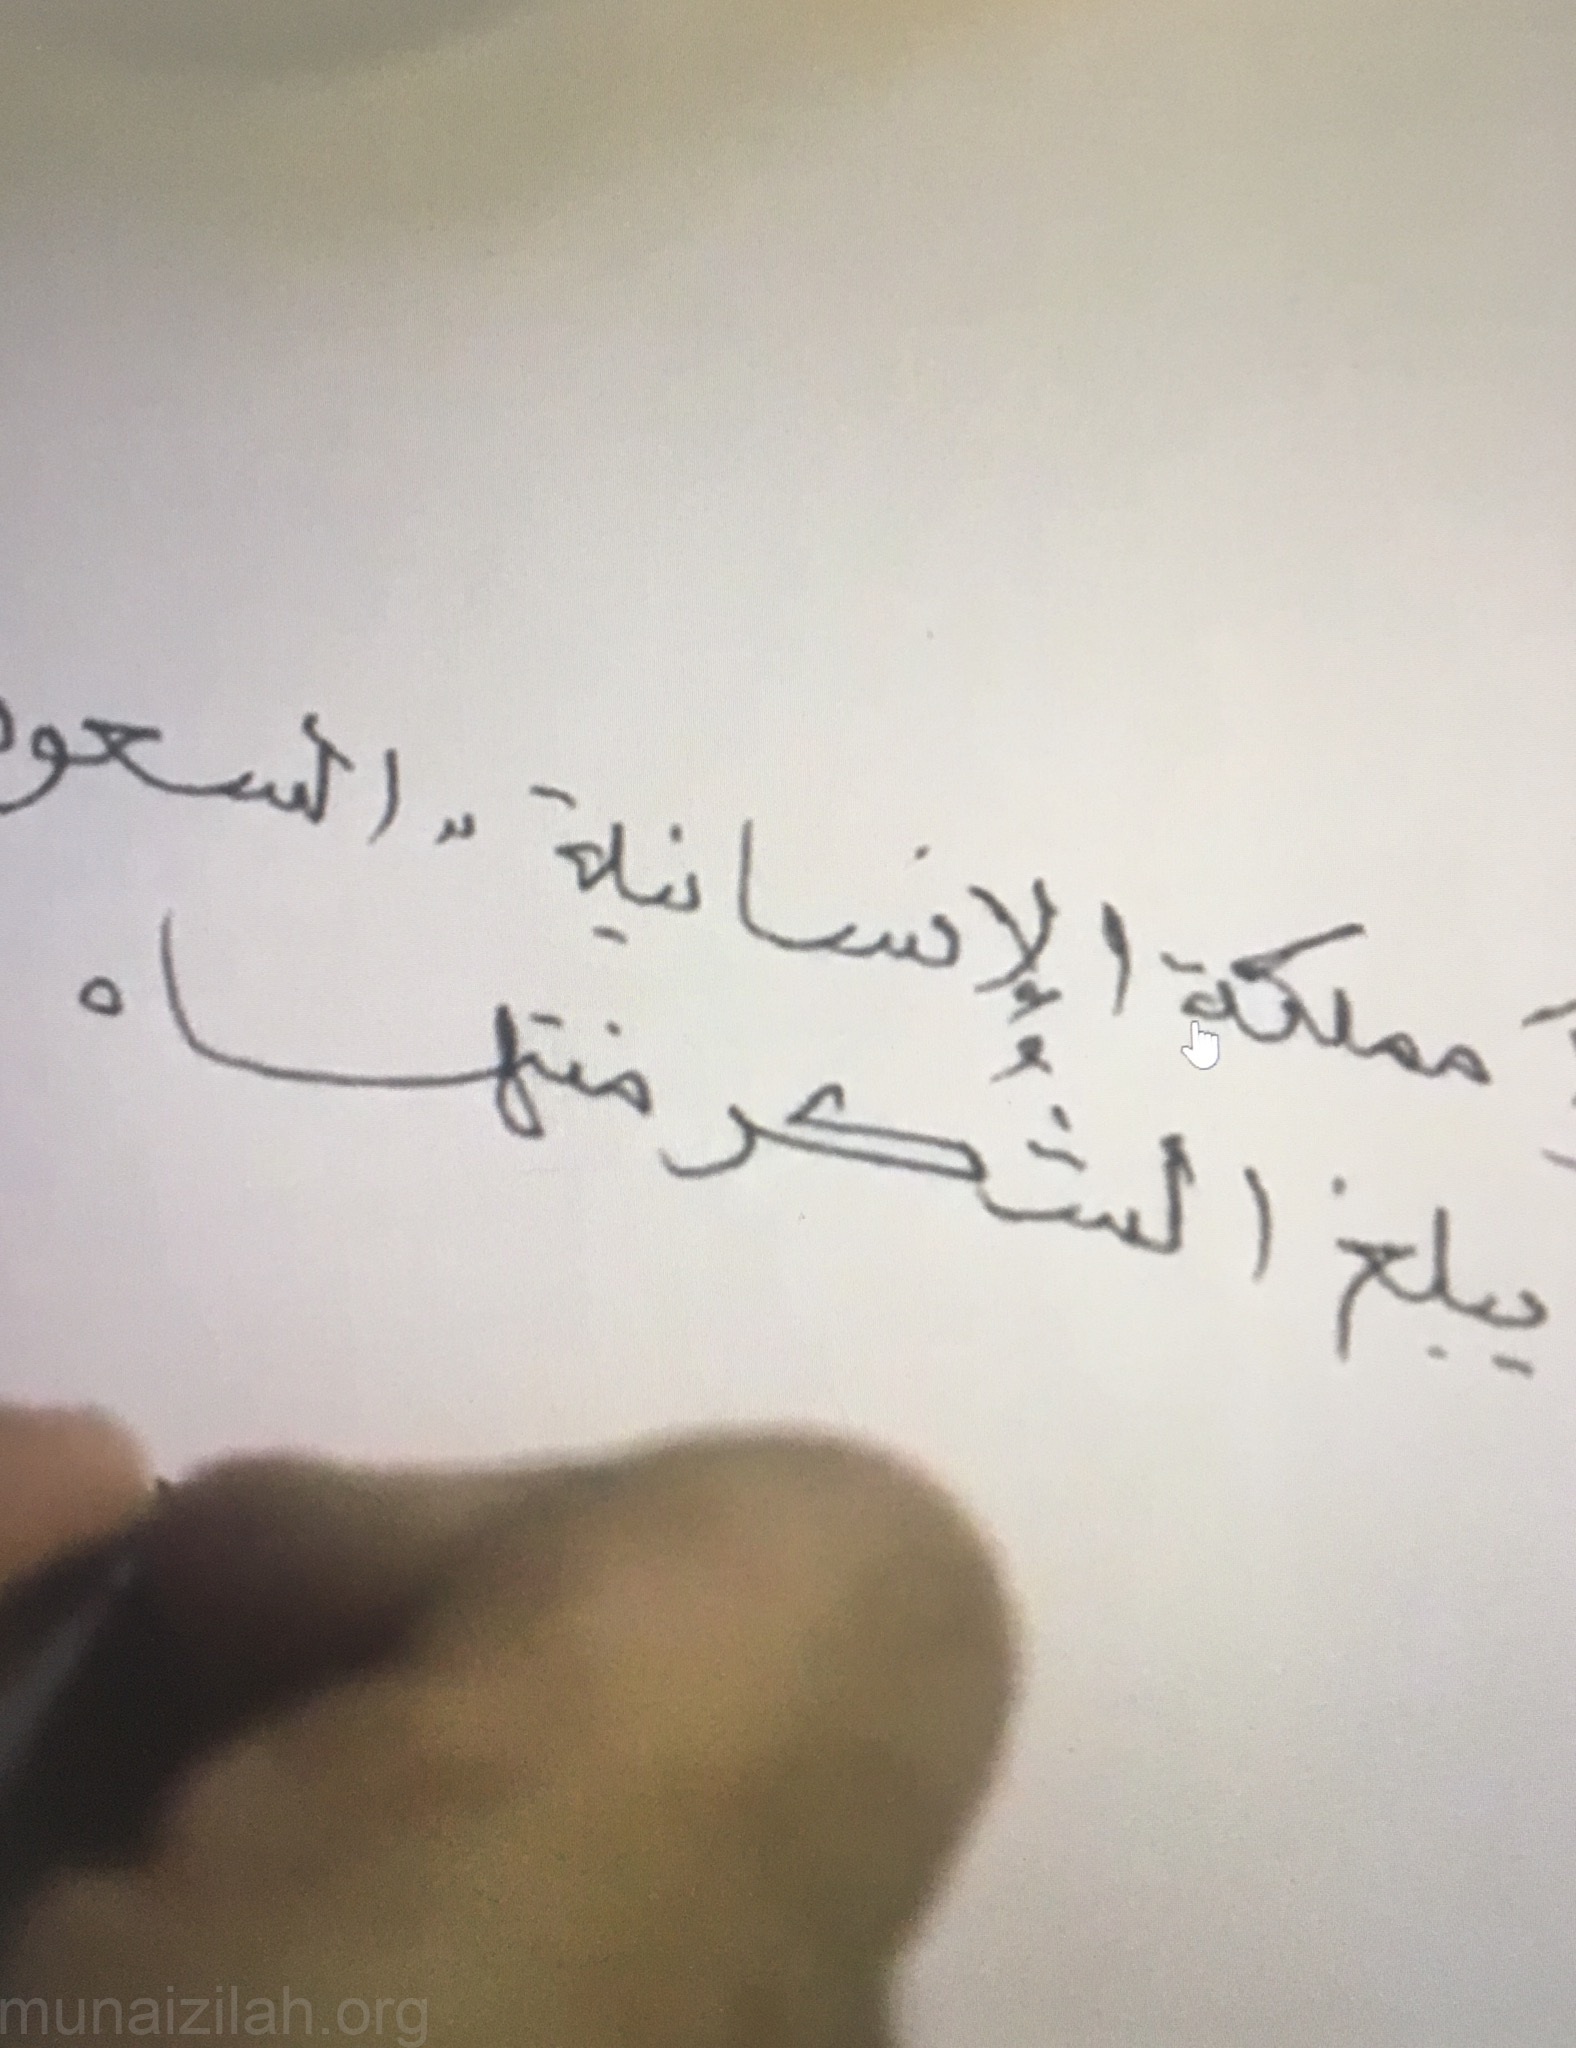 مملكة الإنسانية " السعود
يبلغ الشُكر منتهاه
munaizilah.org